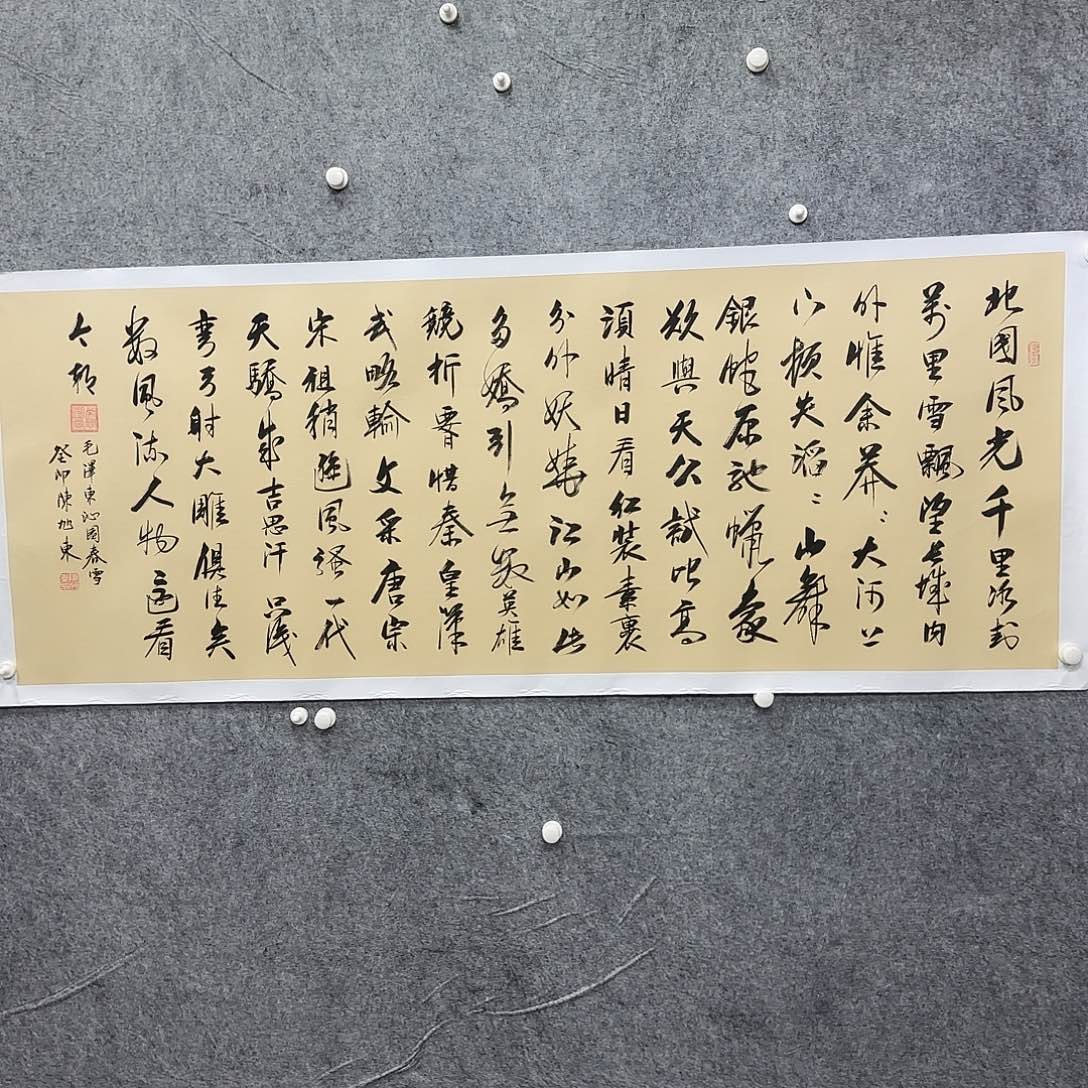 北國風光千里冰封
萬里雪飄望長城内
外惟余莽〻大河上
下頓失滔〻山舞
銀蛇原馳蠟象
欲與天公試比高
須晴日看紅裝素裹
分外妖嬈江山如此
多嬌引無數英雄
競折腰惜秦皇漢
武略輸文采唐宗
宋祖稍遜風騷一代
天驕成吉思汗只識
彎弓射大雕俱往矣
數風流人物還看
今朝
毛澤東沁園春雪
癸卯陳旭東